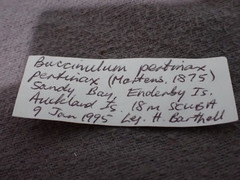 Buccinulum pertinax
pertinax (Martens, 1875)
Sandy Bay, Enderby Is.
Auckland Is. 18m SCUBA
9 Jan 1995 Leg. H. Barthell